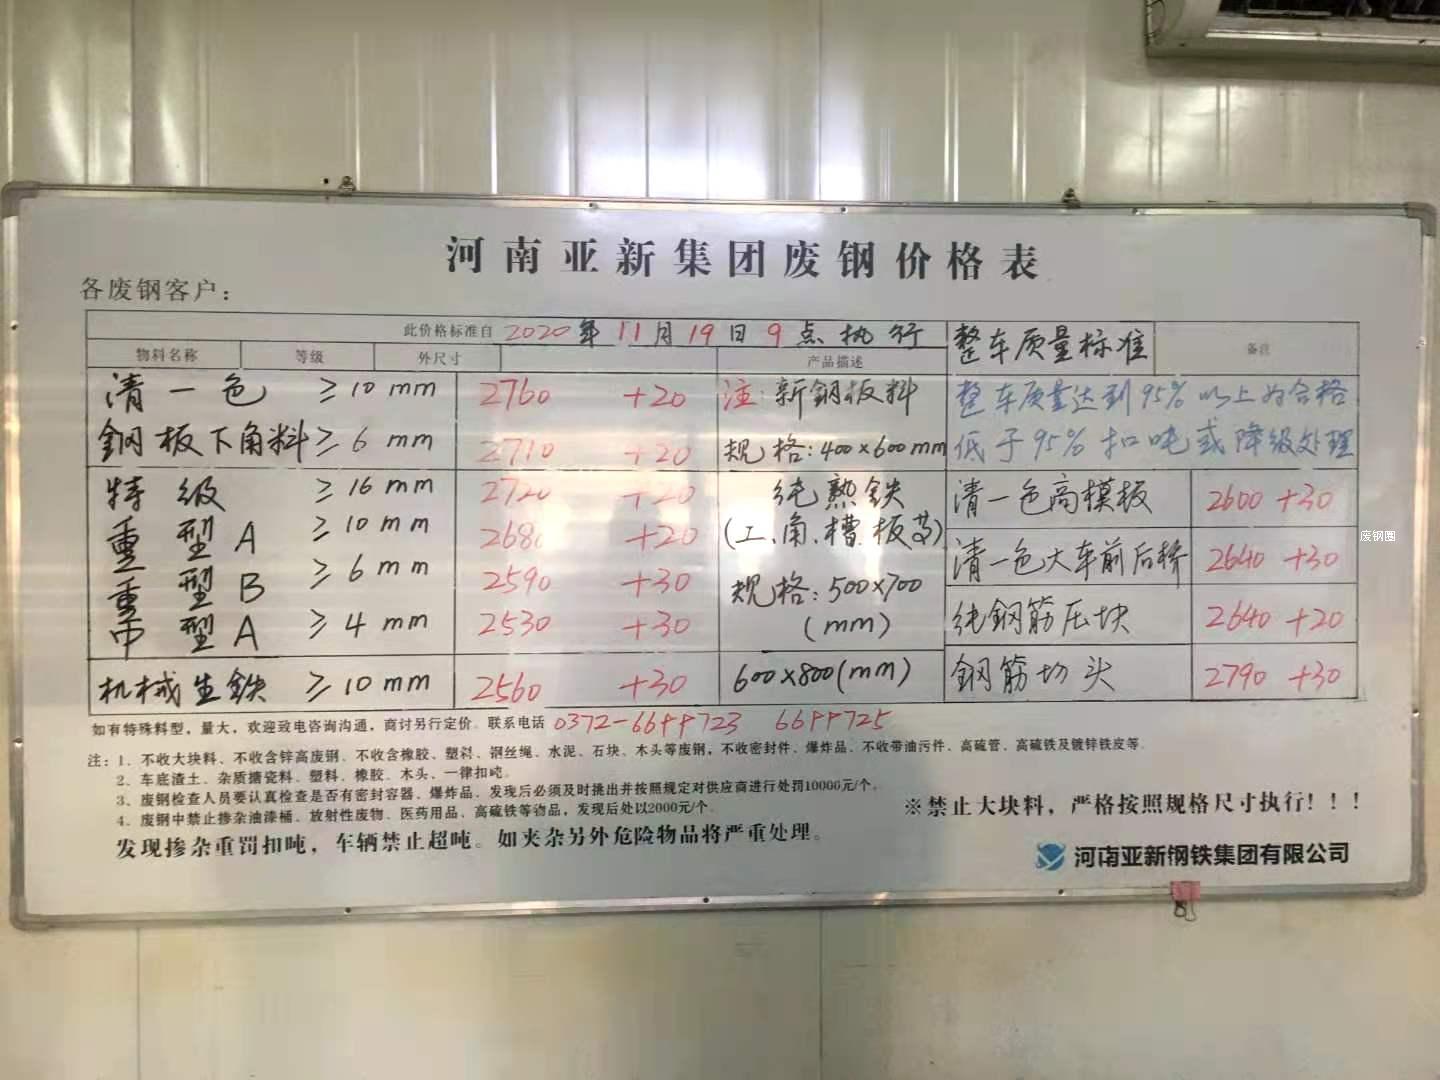 河南亚新集团废钢价格表
各废钢客户：
此价格标准自 2020年 11月 19日 9点 执行
整车质量标准
备注
物料名称 等级 外尺寸 产品描述
清一色 ≥10mm 2760 +20
钢板下角料 ≥6mm 2710 +20
注：新钢板料
规格：400×600mm
整车质量达到95%以上为合格
低于95%扣吨或降级处理
特级 ≥16mm 2720 +20
重型A ≥10mm 2680 +20
重型B ≥6mm 2590 +30
中型A ≥4mm 2530 +30
纯熟铁
(工、角、槽、板等)
规格：500×700
(mm)
机械生铁 ≥10mm 2560 +30 600×800(mm)
清一色高模板 2600 +30
清一色大车前后桥 2640 +30
纯钢筋压块 2640 +20
钢筋切头 2790 +30
如有特殊料型，量大，欢迎致电咨询沟通，商讨另行定价。联系电话 0372-6699723 6699725
注：1、不收大块料、不收含锌高废钢、不收含橡胶、塑料、钢丝绳、水泥、石块、木头等废钢，不收密封件、爆炸品、不收带油污件、高硫管、高硫铁及镀锌铁皮等。
2、车底渣土、杂质搪瓷料、塑料、橡胶、木头、一律扣吨。
3、废钢检查人员要认真检查是否有密封容器、爆炸品、发现后必须及时挑出并按照规定对供应商进行处罚10000元/个。
4、废钢中禁止掺杂油漆桶、放射性废物、医药用品、高硫铁等物品，发现后处以2000元/个。
※禁止大块料，严格按照规格尺寸执行！！！
发现掺杂重罚扣吨，车辆禁止超吨。如夹杂另外危险物品将严重处理。
河南亚新钢铁集团有限公司
废钢圈